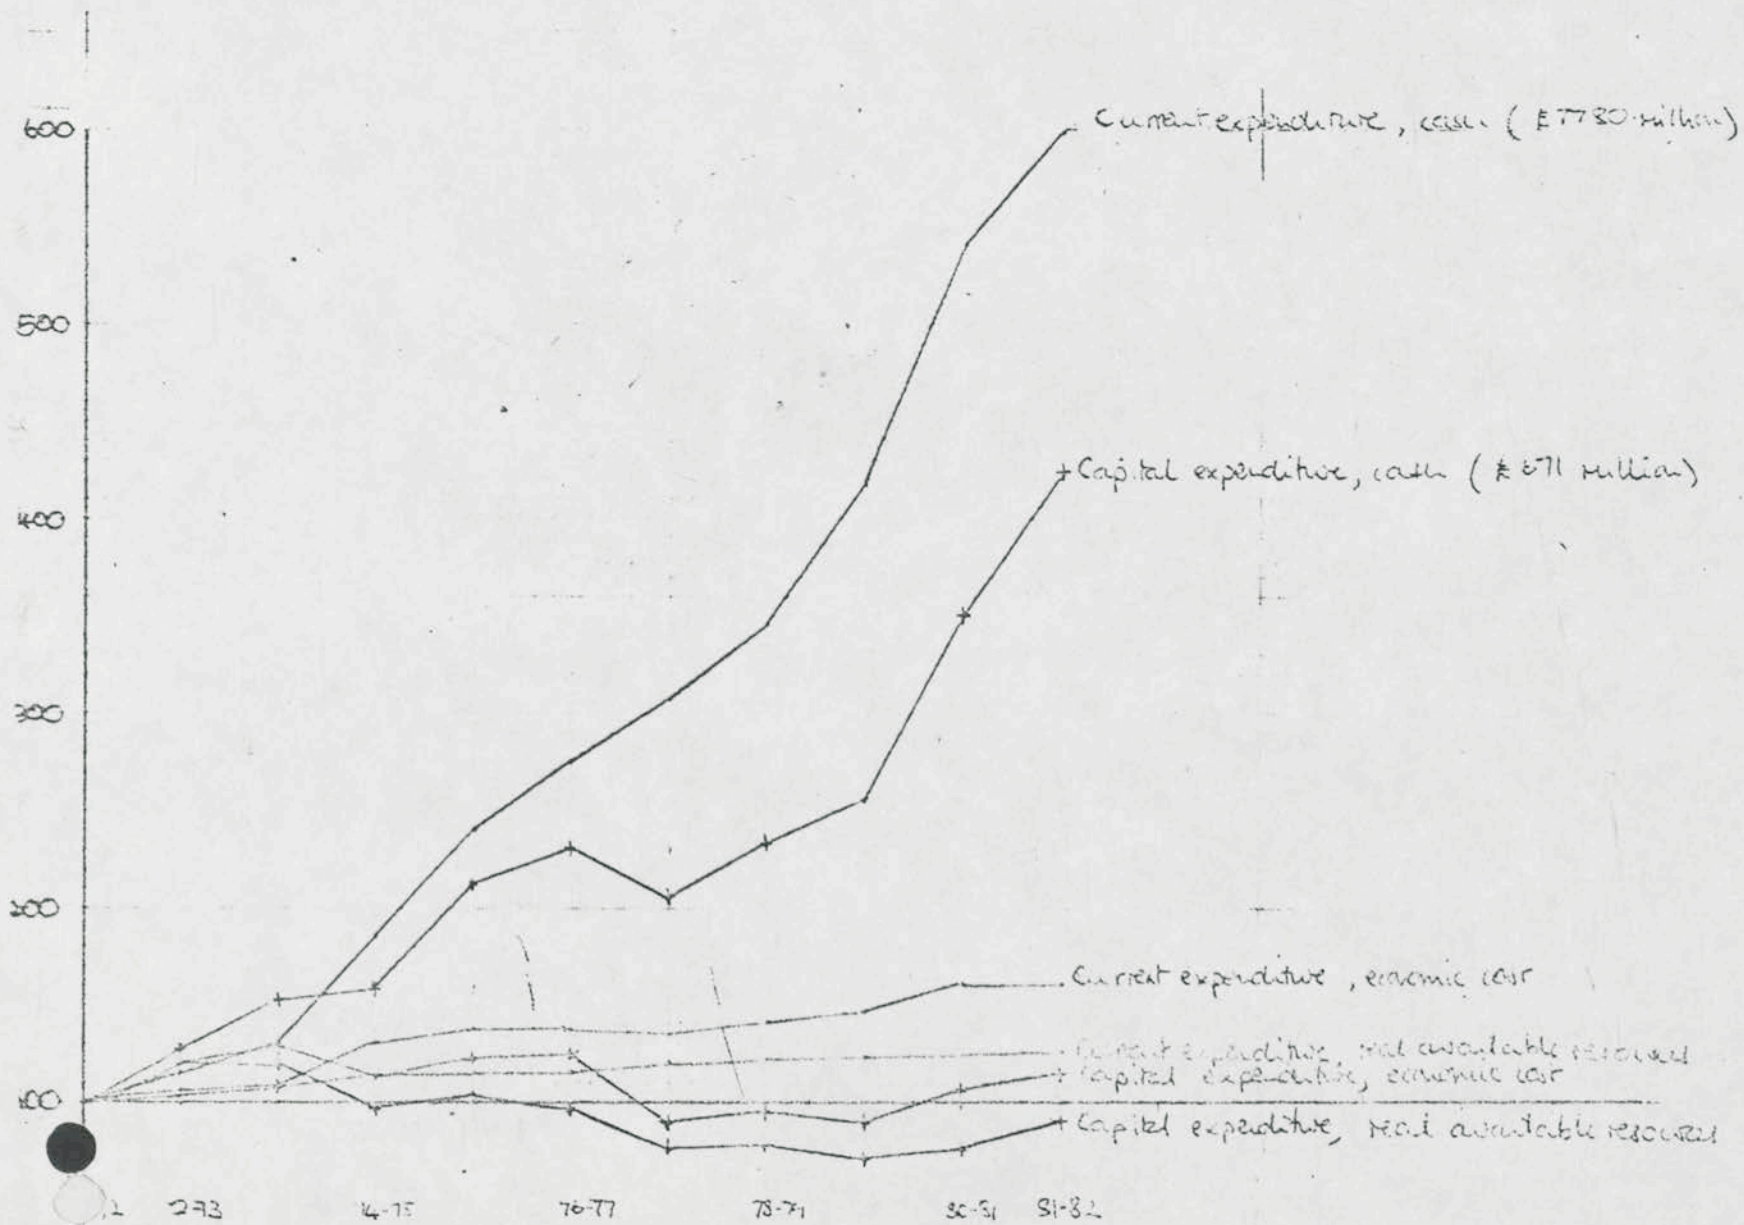 600
Current expenditure, cash (£7780 million)
500
Capital expenditure, cash (£ 671 million)
400
300
200
Current expenditure, economic cost
Current expenditure, real available resources
Capital expenditure, economic cost
100
Capital expenditure, real available resources
74-75
76-77
78-79
80-81
81-82